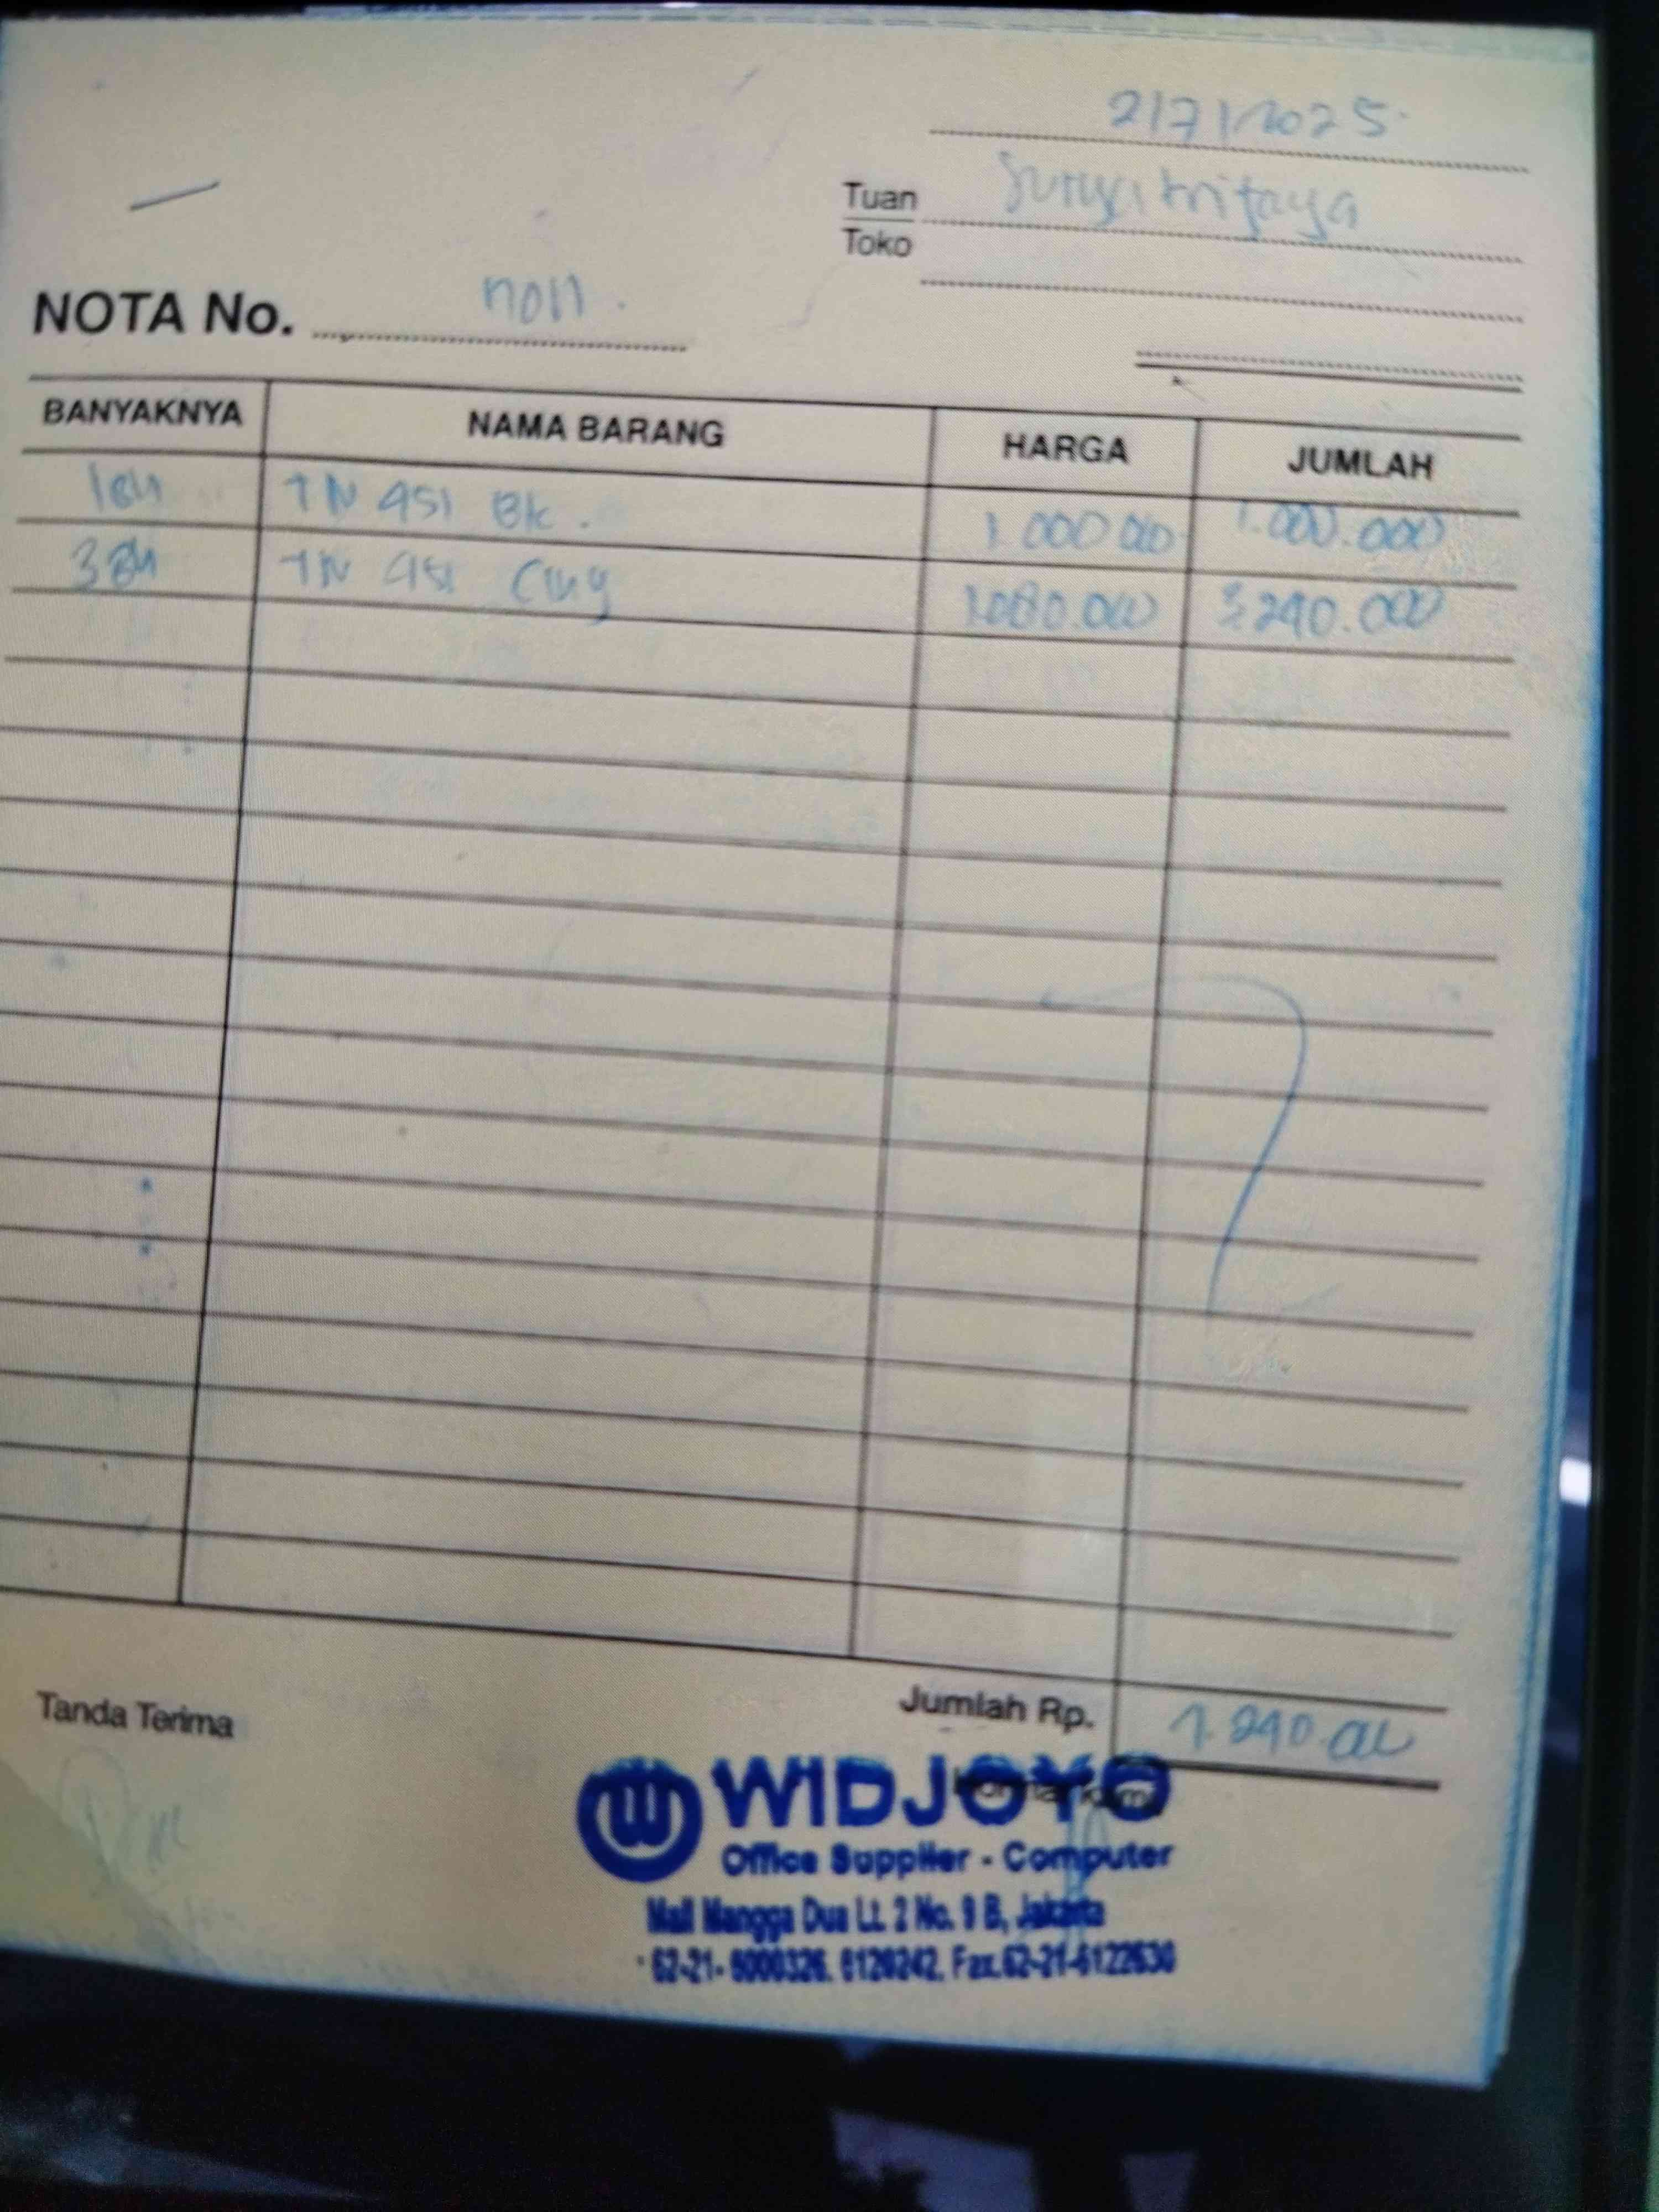 2/7/2025
Tuan Surya trijaya
Toko
NOTA No.
BANYAKNYA NAMA BARANG HARGA JUMLAH
1 BH TN 451 Bk. 1.000.000 1.000.000
3 BH TN 451 CMY 1.080.000 3.240.000
Jumlah Rp. 4.240.000
Tanda Terima
WIDJOYO
Office Supplier - Computer
Mall Mangga Dua Lt. 2 No. 9 B, Jakarta
62-21- 6000326. 6120242. Fax.62-21-6122630